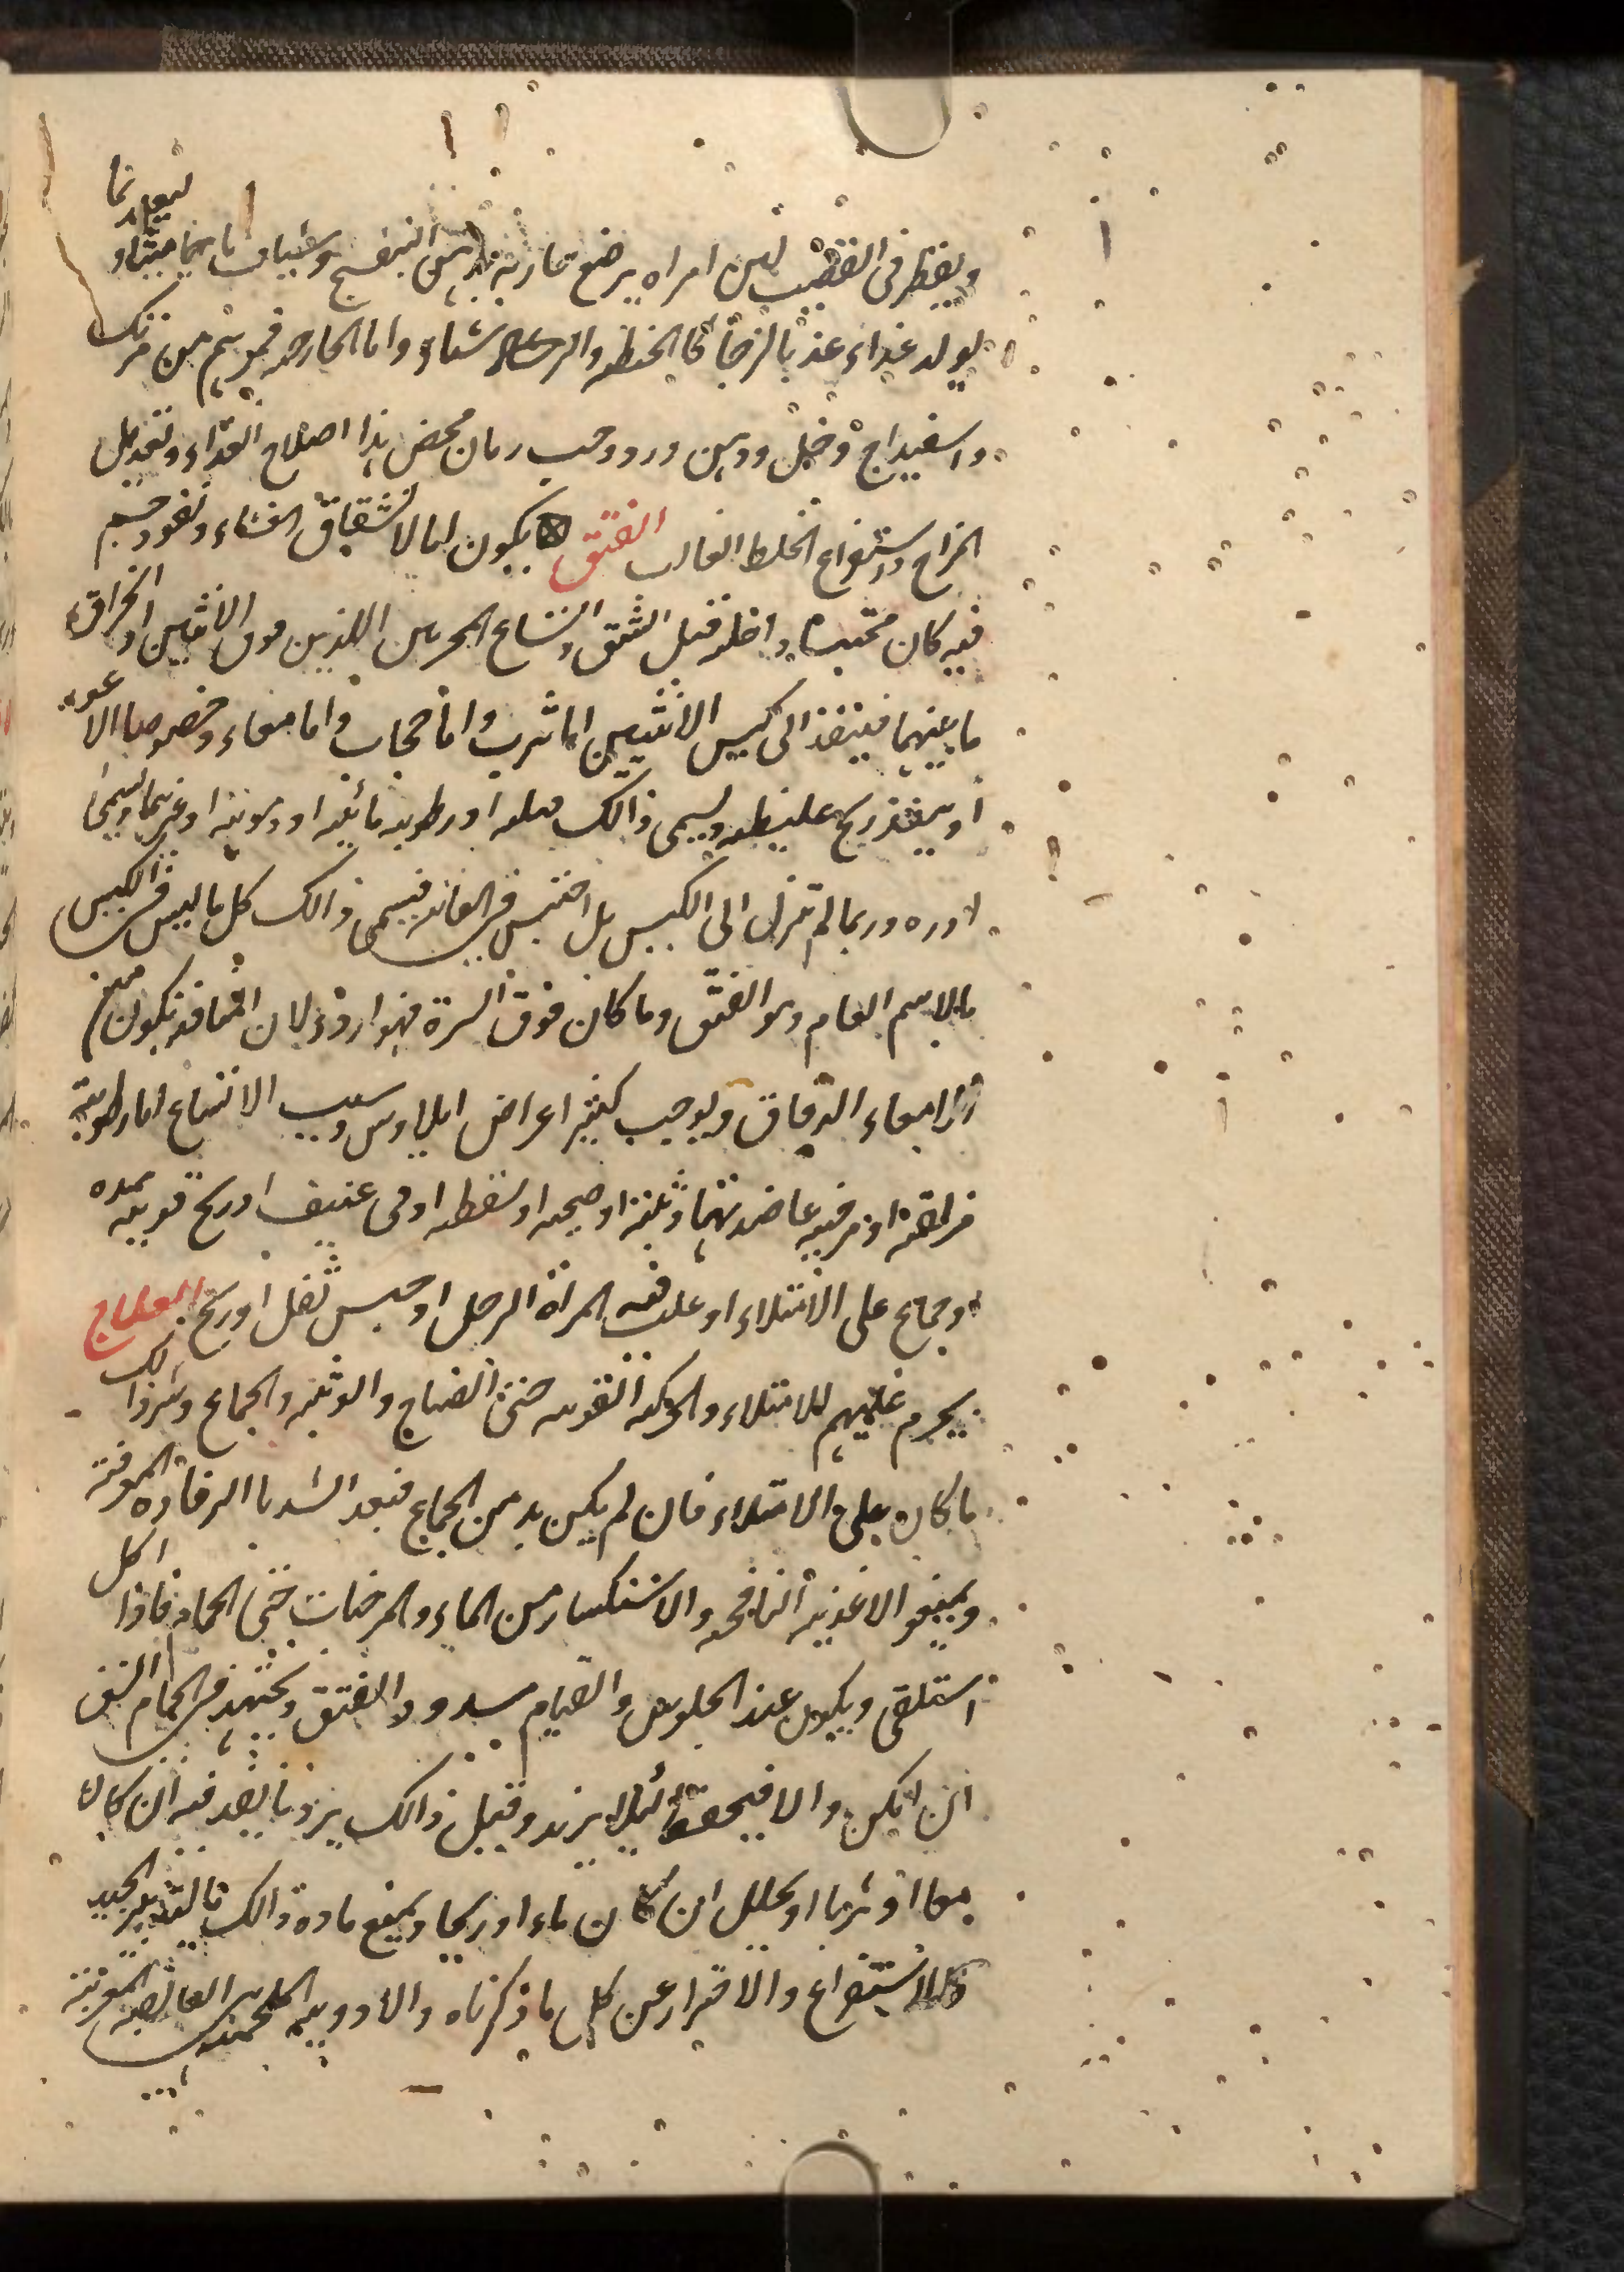 ويقطر فى القضيب لبن امراه يرضع جاريه بدهن البنفسج وشياف ماميثا وليغد بما
يولد غذاء عذبا لزجا كالحنطه والرشتاء واما الخارجه فمرهم من مرتك
واسفيداج وخل ودهن ورد وحب رمان محض بهذا اصلاح الغذاء وتعديل
المزاج واستفراغ الخلط الغالب الفتق يكون اما لانشقاق الغشاء ونفوذ جسم
فيه كان محتبسا داخله قبل الشق واتساع المجريين اللذين فوق الانثيين او انخراق
ما بينهما فينفذ الى كيس الانثيين اما ثرب واما حجاب واما معاء وخصوصا الاعور
او ينفذ ريح غليظه ويسمى ذالك قيله او رطوبه مائيه او دمويه او غيرهما ويسمى
ادره وربما لم تنزل الى الكيس بل احتبس فى العانه فيسمى ذالك كل ما ليس فى الكيس
بالاسم العام وهو الفتق وما كان فوق السرة فهو اردؤ لان المعا قد يكون من
الامعاء الدقاق ويوجب كثير اعراض ايلاوس وسبب الاتساع اما رطوبة
مزلقة او مرخيه عاضدتهما وثبة او صيحه او سقطه او قى عنيف او ريح قويه ممدده
او جماع على الامتلاء او علت فيه المراة الرجل او حبس ثفل او ريح العلاج
يحرم عليهم الامتلاء والحركة القويه حتى الصياح والوثبه والجماع وشر ذالك
ما كان على الامتلاء فان لم يكن بد من الجماع فبعد الشد بالرفاده الموفقة
ويمنعو الاغذيه النافخه والاستكثار من الماء والمرخيات حتى الحمام فاذا اكل
استلقى ويكون عند الجلوس والقيام مسدود الفتق ويجتهد فى الحام الشق
ان امكن والا فيحفظ لئلا يزيد وقبل ذالك يرد ما نفذ فيه ان كان
معا او ثربا او يحلل ان كان ماء او ريحا ويمنع مادة ذالك بالتدبير الجيد
كالاستفراغ والاحتراز عن كل ما ذكرناه والادويه الملحمه هى القابضه المغريه